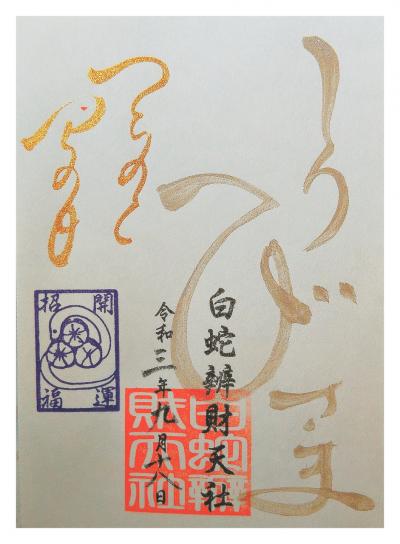 しろへびさま
つちのと
巳の日
白蛇辨財天社
令和三年九月十八日
白蛇辨
財天社
開運
招福